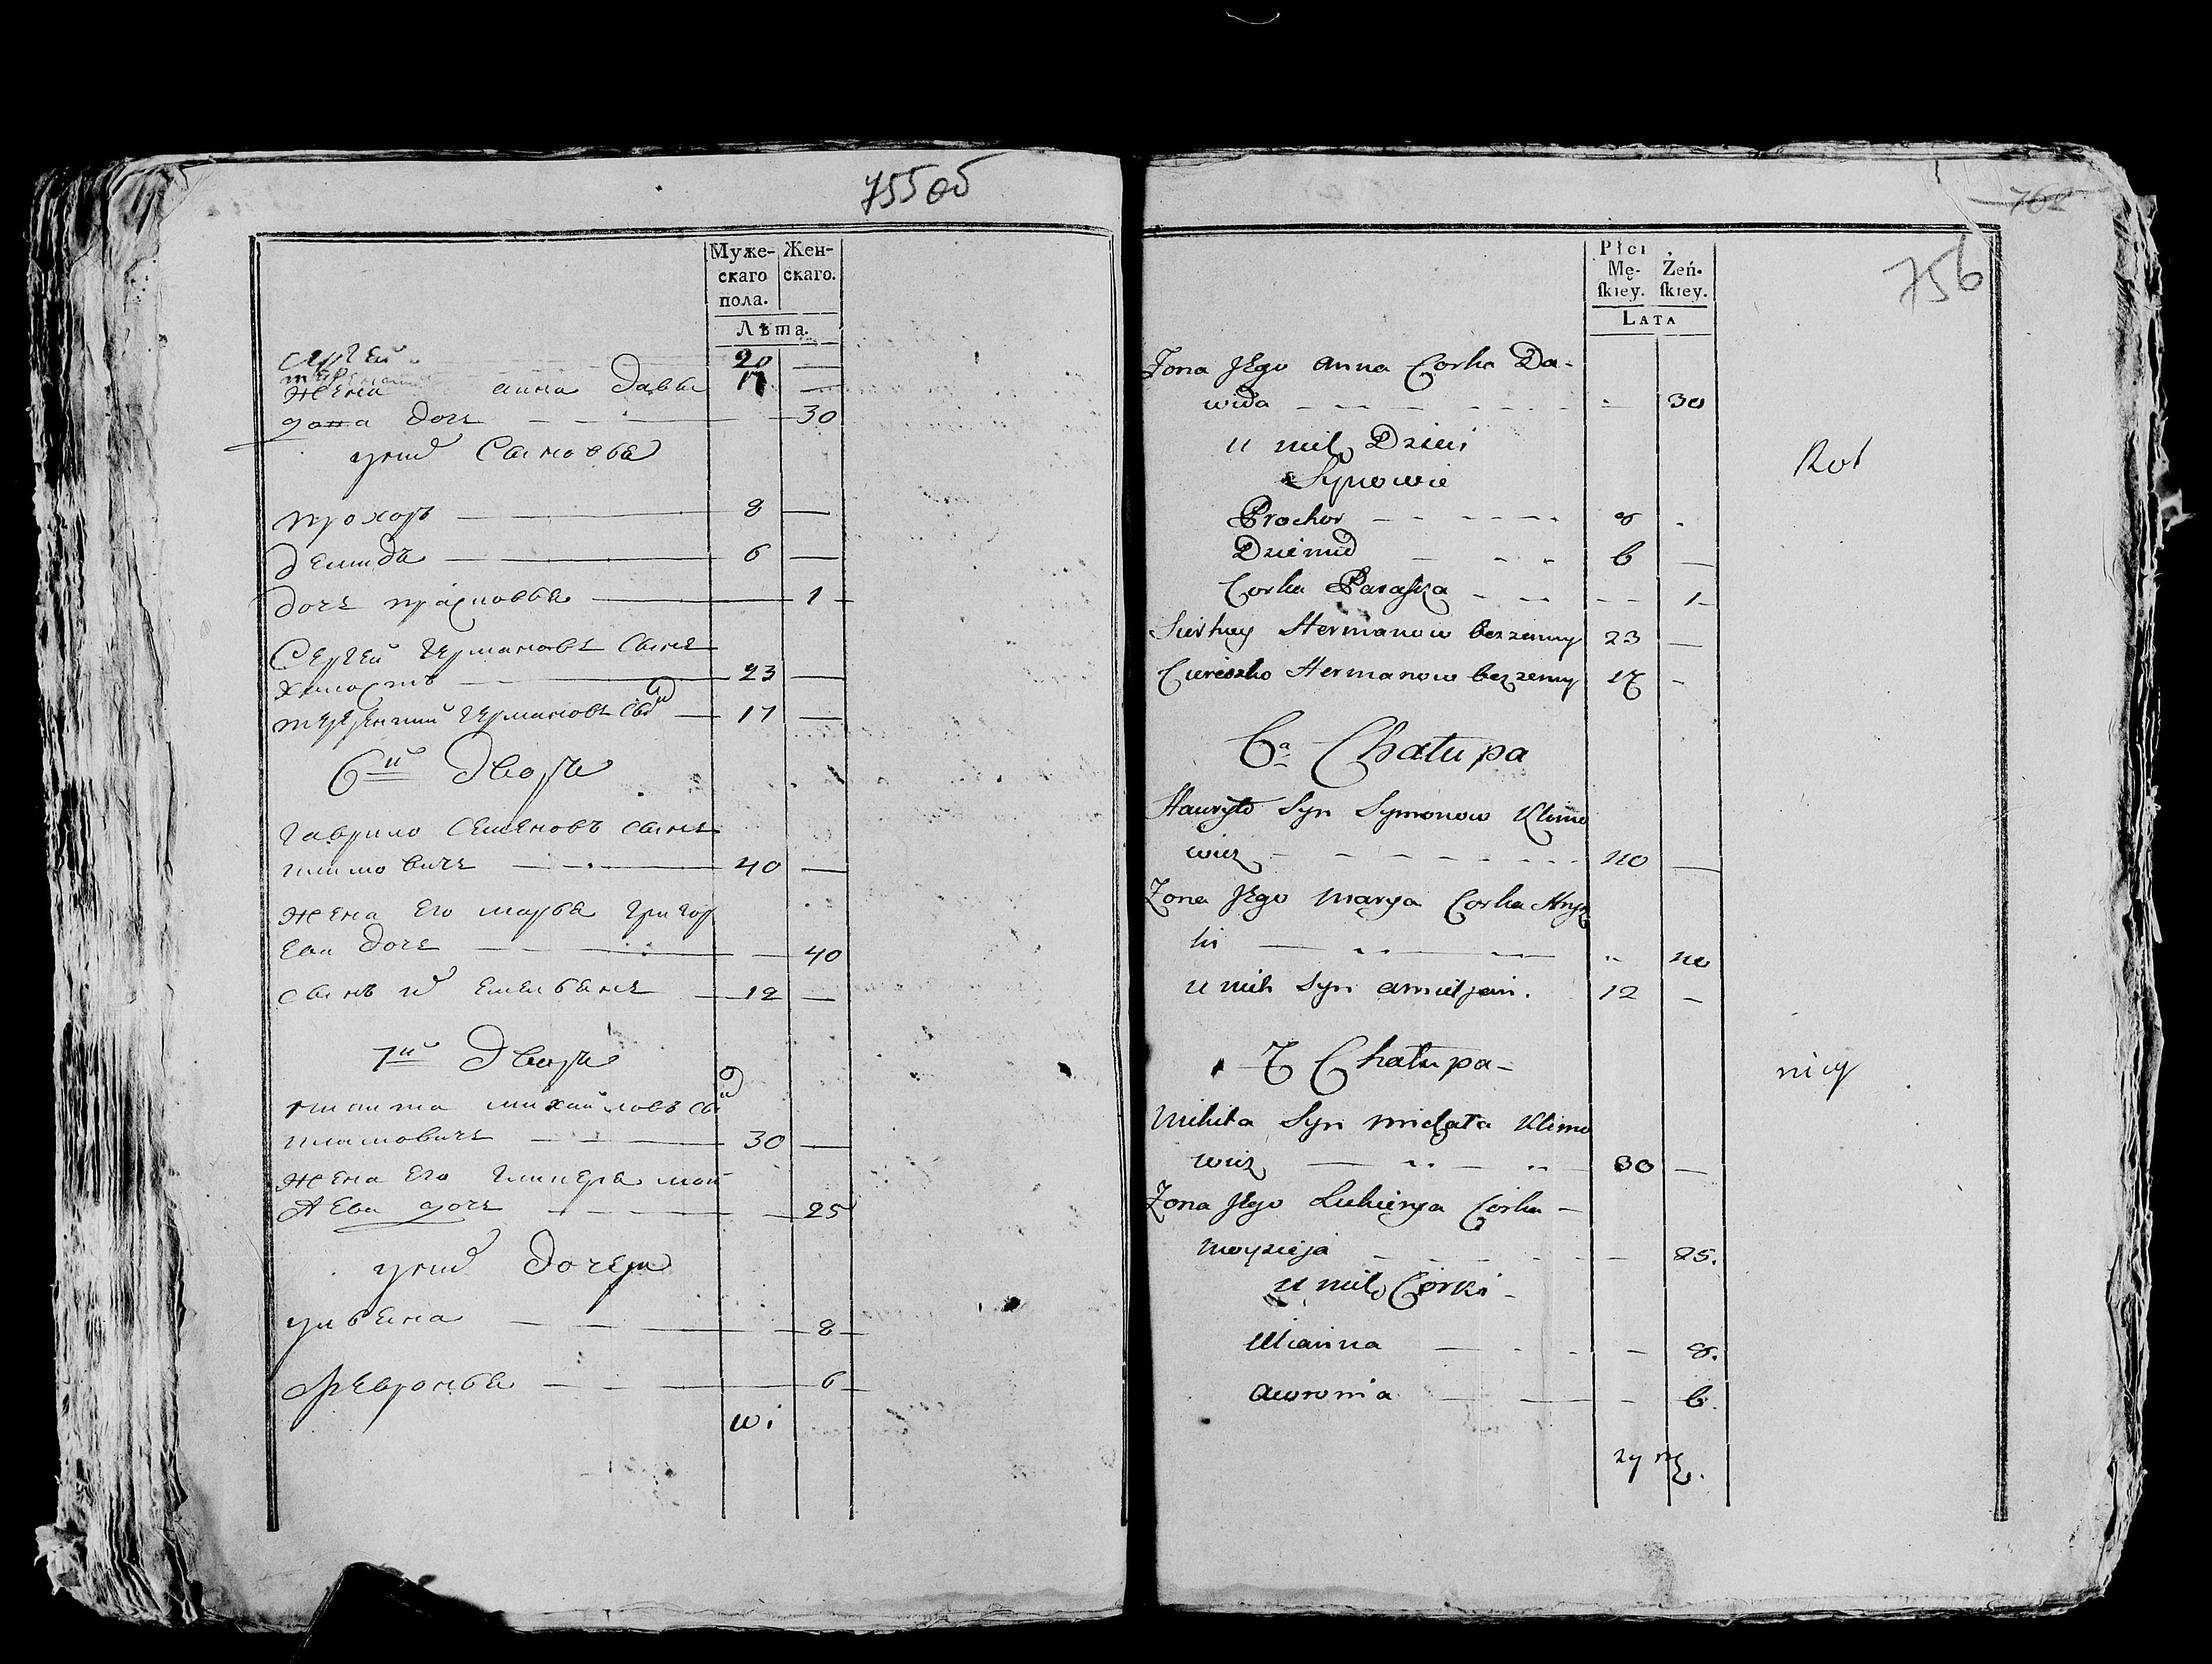 755 об
Муже-
скаго
пола.
Жен-
скаго.
Лѣта.
Сергей 20 —
жена анна давы 17 —
дова дочь — 30
уних Сыновья
прохоръ — 8 —
демидъ — 6 —
дочь прасковья — 1 —
Сергей Германовъ Сынъ
холостъ — 23 —
терентий германовъ сын — 17 —
6й Дворъ
гаврило Семеновъ сынъ
климовичь — 40 —
жена его марья григор
ева дочь — 40
сынъ их емельянъ — 12 —
7й Дворъ
никита михайловъ сын
климовичь — 30 —
жена его гликерья мои
сеева дочь — 25
уних дочери
ульяна — 8 —
февронья — 6 —
762
756
Płci
Mę-
ſkiey.
Żeń-
ſkiey.
LATA
Zona Jego anna Corka Da-
wida — 30
u nich Dzieci
Synowie
Prochor 8
Dziemid 6 —
Corka Paraska 1
Sierhey Hermanow bezzenny 23 —
Ciereszko Hermanow bezzenny 17 -
6a Chałupa
Hauryło Syn Symonow Klimo
wicz 40 —
Zona Jego Marya Corka Hrysz
ki — 40
u nich Syn amieljan. 12 —
7 Chałupa -
Mikita Syn Michała Klimo
wicz — 30 —
Zona Jego Lukierya Corka —
Moyzieja — 25.
u nich Corki -
Ulianna — 8.
aworonia — 6.
Rot
nicy